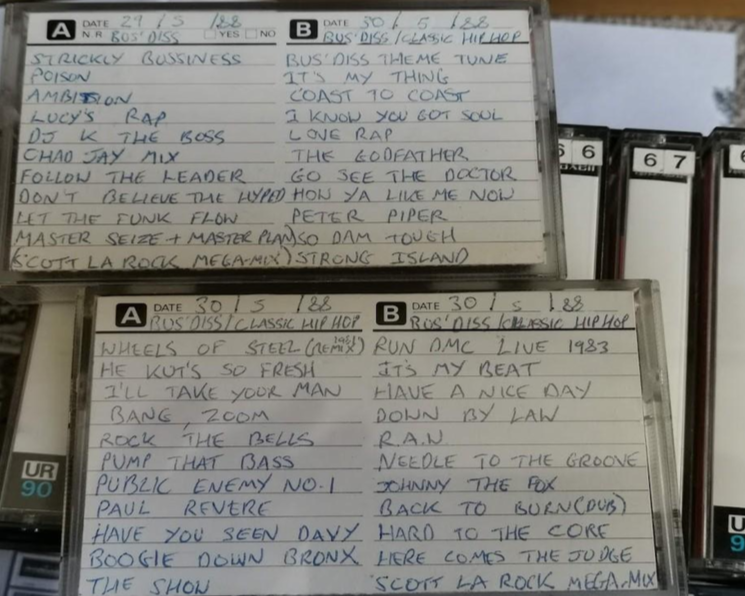 A DATE 29 / 5 /88
N.R. BUS' DISS YES NO
STRICKLY BUSSINESS
POISON
AMBITION
LUCY'S RAP
DJ K THE BOSS
CHAD JAY MIX
FOLLOW THE LEADER
DON'T BELIEVE THE HYPED
LET THE FUNK FLOW
MASTER SEIZE + MASTER PLAN)
(SCOTT LA ROCK MEGA-MIX)
B DATE 30 / 5 /88
BUS' DISS / CLASSIC HIP HOP
BUS' DISS THEME TUNE
IT'S MY THING
COAST TO COAST
I KNOW YOU GOT SOUL
LOVE RAP
THE GODFATHER
GO SEE THE DOCTOR
HOW YA LIKE ME NOW
PETER PIPER
SO DAM TOUGH
STRONG ISLAND
6 6
maxell
6 7
6
A DATE 30 / 5 /88
BUS' DISS / CLASSIC HIP HOP
WHEELS OF STEEL (REMIX)
HE KUT'S SO FRESH
I'LL TAKE YOUR MAN
BANG, ZOOM
ROCK THE BELLS
PUMP THAT BASS
PUBLIC ENEMY NO. 1
PAUL REVERE
HAVE YOU SEEN DAVY
BOOGIE DOWN BRONX
THE SHOW
B DATE 30 / 5 /88
BUS' DISS / CLASSIC HIP HOP
RUN DMC LIVE 1983
IT'S MY BEAT
HAVE A NICE DAY
DOWN BY LAW
R.A.N.
NEEDLE TO THE GROOVE
JOHNNY THE FOX
BACK TO BURN (DUB)
HARD TO THE CORE
HERE COMES THE JUDGE
SCOTT LA ROCK MEGA-MIX
UR
90
U
9